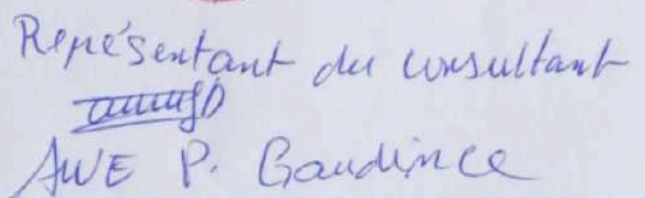 Représentant du consultant
AWE P. Gaudince